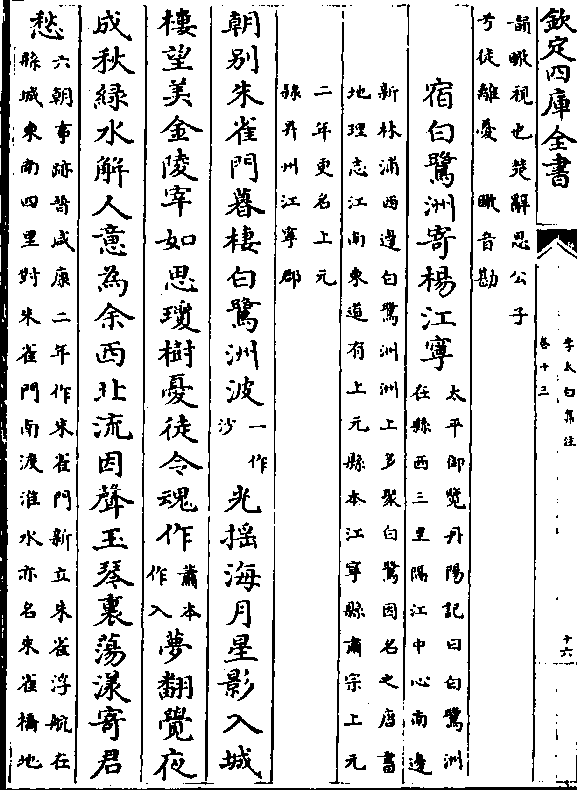 欽定四庫全書
李太白集注
卷十三
十六
韻瞰視也楚辭思公子
兮徒離憂　瞰音勘
宿白鷺洲寄楊江寧
太平御覽丹陽記曰白鷺洲
在縣西三里隔江中心南邊
新林浦西邊白鷺洲洲上多聚白鷺因名之唐書
地理志江南東道有上元縣本江寧縣肅宗上元
二年更名上元
縣昇州江寧郡
朝别朱雀門暮棲白鷺洲波
一作
沙
光揺海月星影入城
樓望美金陵宰如思瓊樹憂徒令魂作
蕭本
作入
夢翻覺夜
成秋緑水解人意為余西北流因聲玉琴裏蕩漾寄君
愁
六朝事跡晉咸康二年作朱雀門新立朱雀浮航在
縣城東南四里對朱雀門南渡淮水亦名朱雀橋地